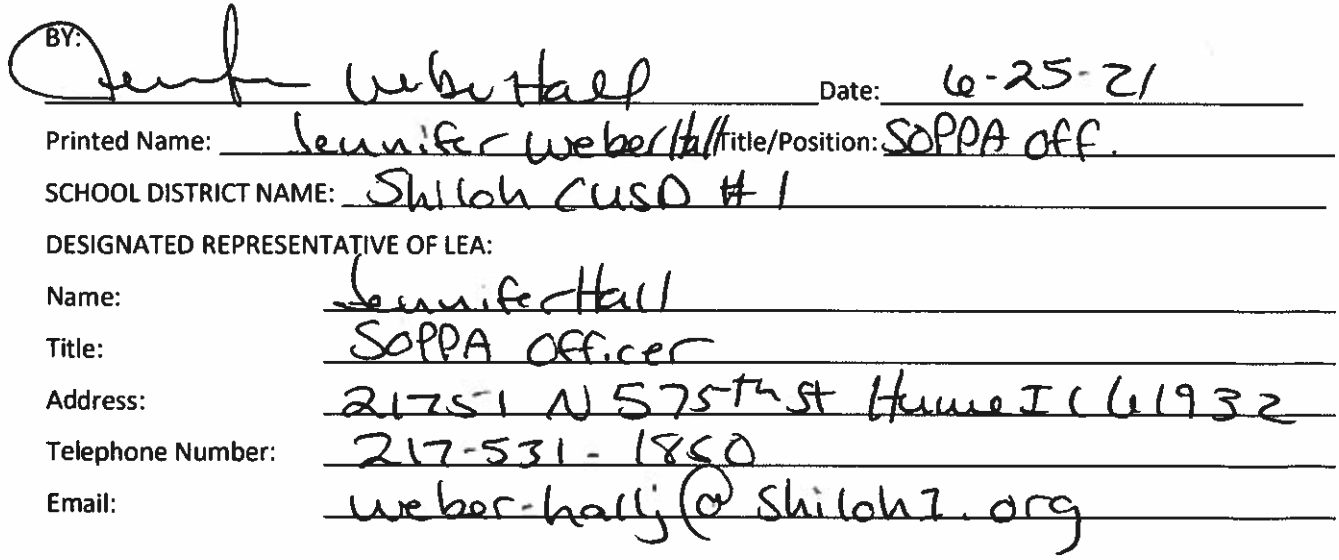 BY: Jennifer Weber Hall Date: 6-25-21
Printed Name: Jennifer Weber Hall Title/Position: SOPPA Off.
SCHOOL DISTRICT NAME: Shiloh CUSD #1
DESIGNATED REPRESENTATIVE OF LEA:
Name: Jennifer Hall
Title: SOPPA Officer
Address: 21751 N 575th St Hume IL 61932
Telephone Number: 217-531-1850
Email: weber-hallj@shiloh1.org